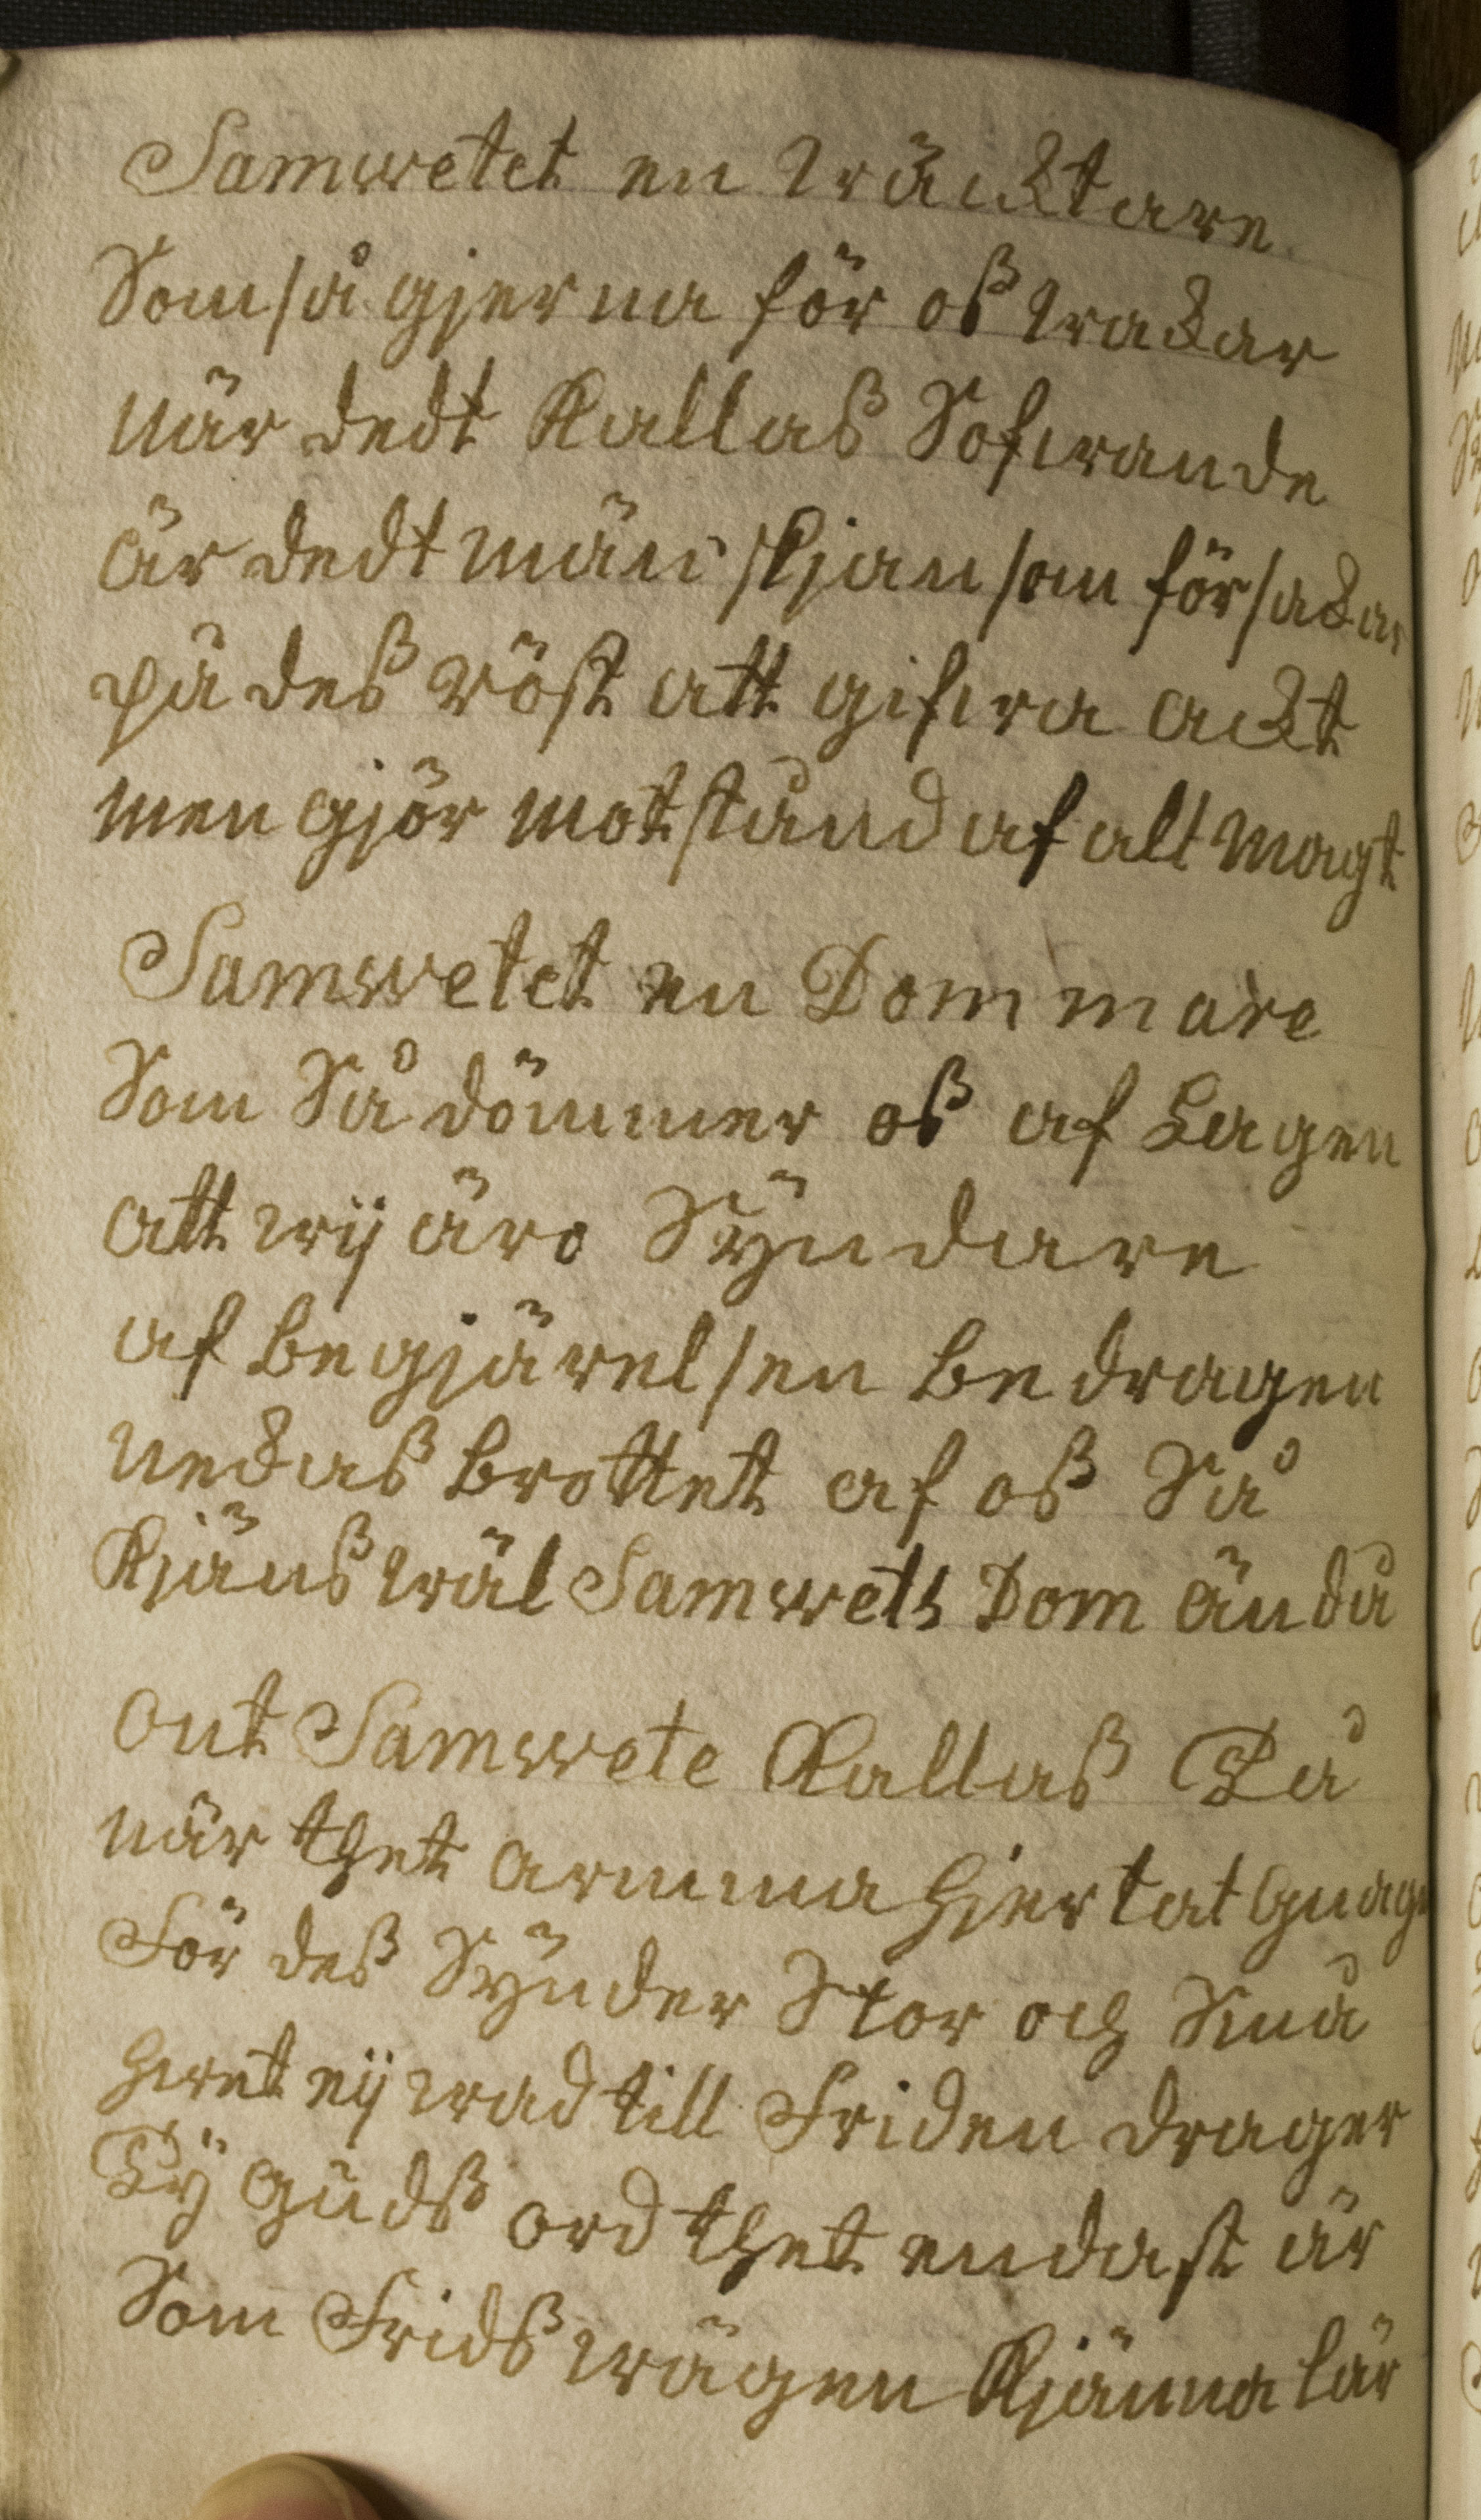 Samwetet en wäcktare
Som så gjerna för oß wakar
när dedt Kallas Sofwande
är dedt mänskjan som försakar
på deß röst att gifwa ackt
men gjör motstånd af alt magt
Samwetet en Dommare
Som Så dömmer oß af Lagen
att wij äro Syndare
af begjärelsen bedragen
nekas brottet af oß Så
Kjänß wäl Samwets Dom ändå
ont Samwete Kallas Då
när thet arma hjertat gnager
För deß Synder Stor och Små
hwet nij wad till Friden drager
Ty Gudß ord thet endast är
Som Fridß wägen Kjänna lär